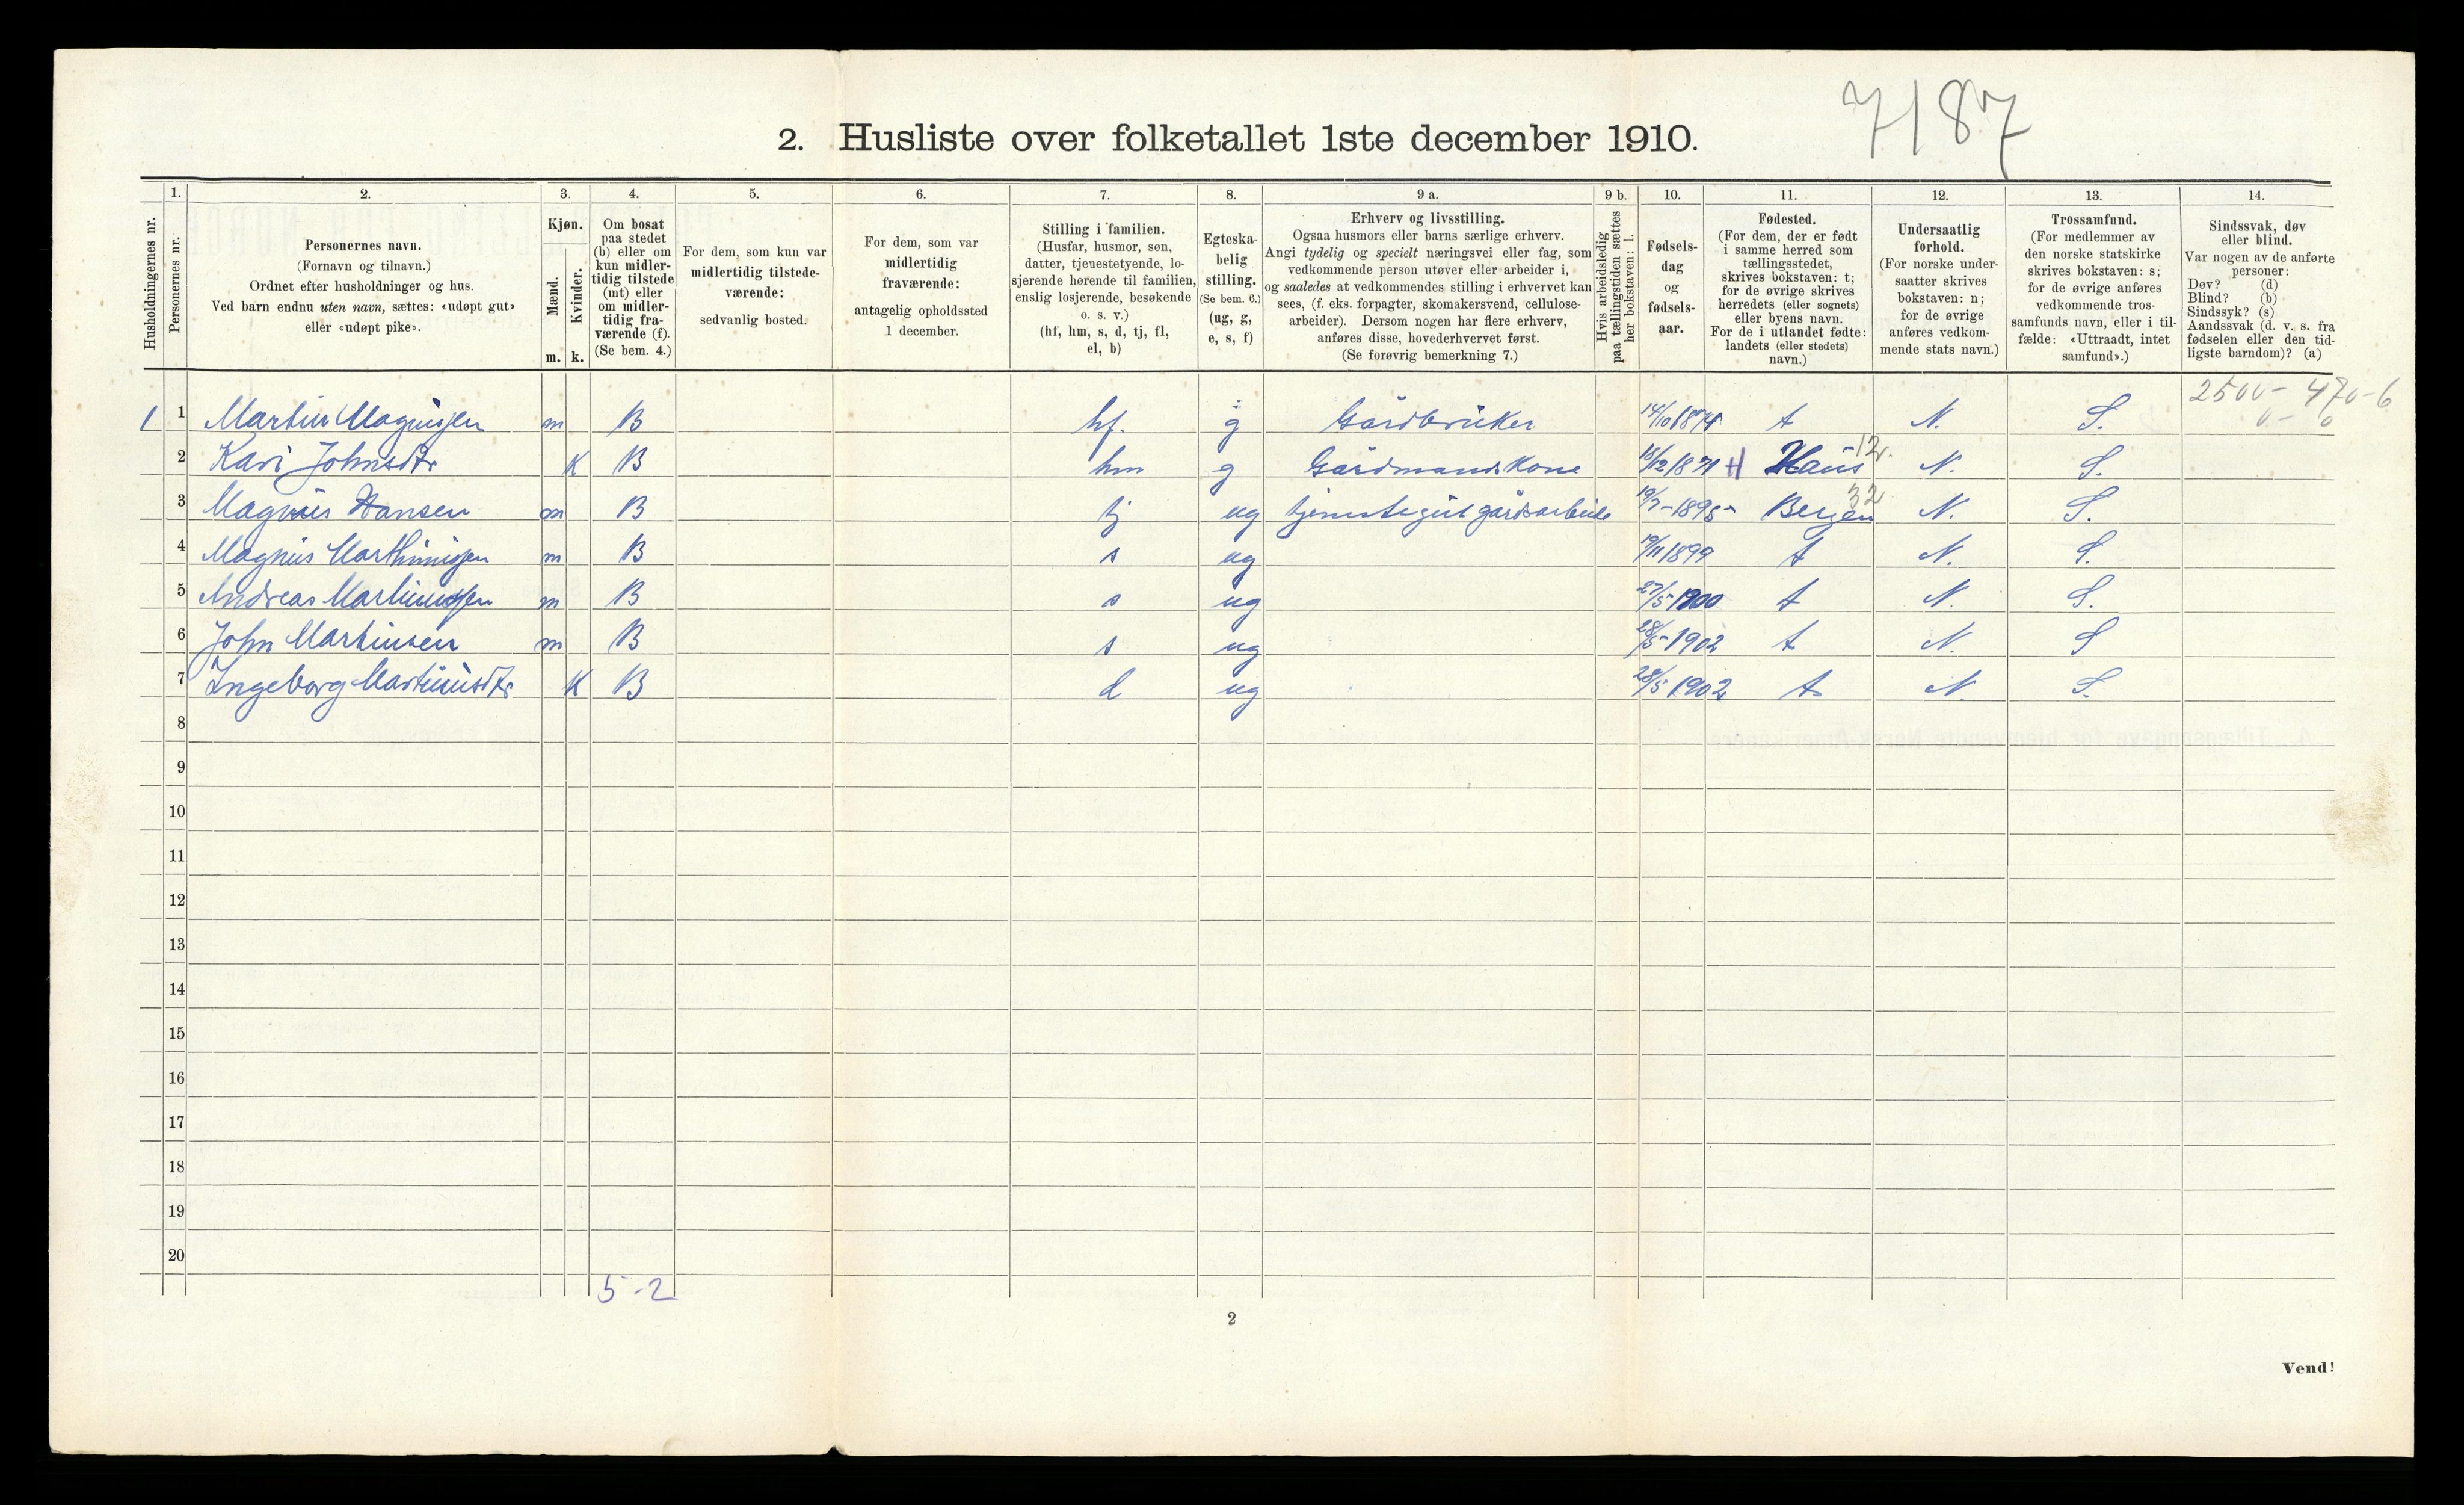 7187
2. Husliste over folketallet 1ste december 1910.
Husholdningernes nr.
1.
Personernes nr.
2.
Personernes navn.
(Fornavn og tilnavn.)
Ordnet efter husholdninger og hus.
Ved barn endnu uten navn, sættes: «udøpt gut»
eller «udøpt pike».
3.
Kjøn.
Mænd.
Kvinder.
m. k.
4.
Om bosat
paa stedet
(b) eller om
kun midler-
tidig tilstede
(mt) eller
om midler-
tidig fra-
værende (f).
(Se bem. 4.)
5.
For dem, som kun var
midlertidig tilstede-
værende:
sedvanlig bosted.
6.
For dem, som var
midlertidig
fraværende:
antagelig opholdssted
1 december.
7.
Stilling i familien.
(Husfar, husmor, søn,
datter, tjenestetyende, lo-
sjerende hørende til familien,
enslig losjerende, besøkende
o. s. v.)
(hf, hm, s, d, tj, fl,
el, b)
8.
Egteska-
belig
stilling.
(Se bem. 6.)
(ug, g,
e, s, f)
9 a.
Erhverv og livsstilling.
Ogsaa husmors eller barns særlige erhverv.
Angi tydelig og specielt næringsvei eller fag, som
vedkommende person utøver eller arbeider i,
og saaledes at vedkommendes stilling i erhvervet kan
sees, (f. eks. forpagter, skomakersvend, cellulose-
arbeider). Dersom nogen har flere erhverv,
anføres disse, hovederhvervet først.
(Se forøvrig bemerkning 7.)
9 b.
Hvis arbeidsledig
paa tællingstiden sættes
her bokstaven: l.
10.
Fødsels-
dag
og
fødsels-
aar.
11.
Fødested.
(For dem, der er født
i samme herred som
tællingsstedet,
skrives bokstaven: t;
for de øvrige skrives
herredets (eller sognets)
eller byens navn.
For de i utlandet fødte:
landets (eller stedets)
navn.)
12.
Undersaatlig
forhold.
(For norske under-
saatter skrives
bokstaven: n;
for de øvrige
anføres vedkom-
mende stats navn.)
13.
Trossamfund.
(For medlemmer av
den norske statskirke
skrives bokstaven: s;
for de øvrige anføres
vedkommende tros-
samfunds navn, eller i til-
fælde: «Uttraadt, intet
samfund».)
14.
Sindssvak, døv
eller blind.
Var nogen av de anførte
personer:
Døv? (d)
Blind? (b)
Sindssyk? (s)
Aandssvak (d. v. s. fra
fødselen eller den tid-
ligste barndom)? (a)
2500 - 470-6
0 - 0
1 1 Martin Magnusen m B hf. g Gårdbruker 14/10 1874 t N. S.
2 Kari Johnsdtr K B hm g Gårdmandskone 15/12 1871 H Haus 12. N. S.
3 Magnus Hansen m B tj ug tjenestegut gårdsarbeide 19/7-1895- Bergen 32 N. S.
4 Magnus Marthinusen m B s ug 19/11 1899 t N. S.
5 Andreas Martinusen m B s ug 27/5 1900 t N. S.
6 John Martinsen m B s ug 28/5-1902 t N. S
7 Ingeborg Martinusdtr K B d ug 28/5 1902 t N. S.
8
9
10
11
12
13
14
15
16
17
18
19
20
5-2
2
Vend!